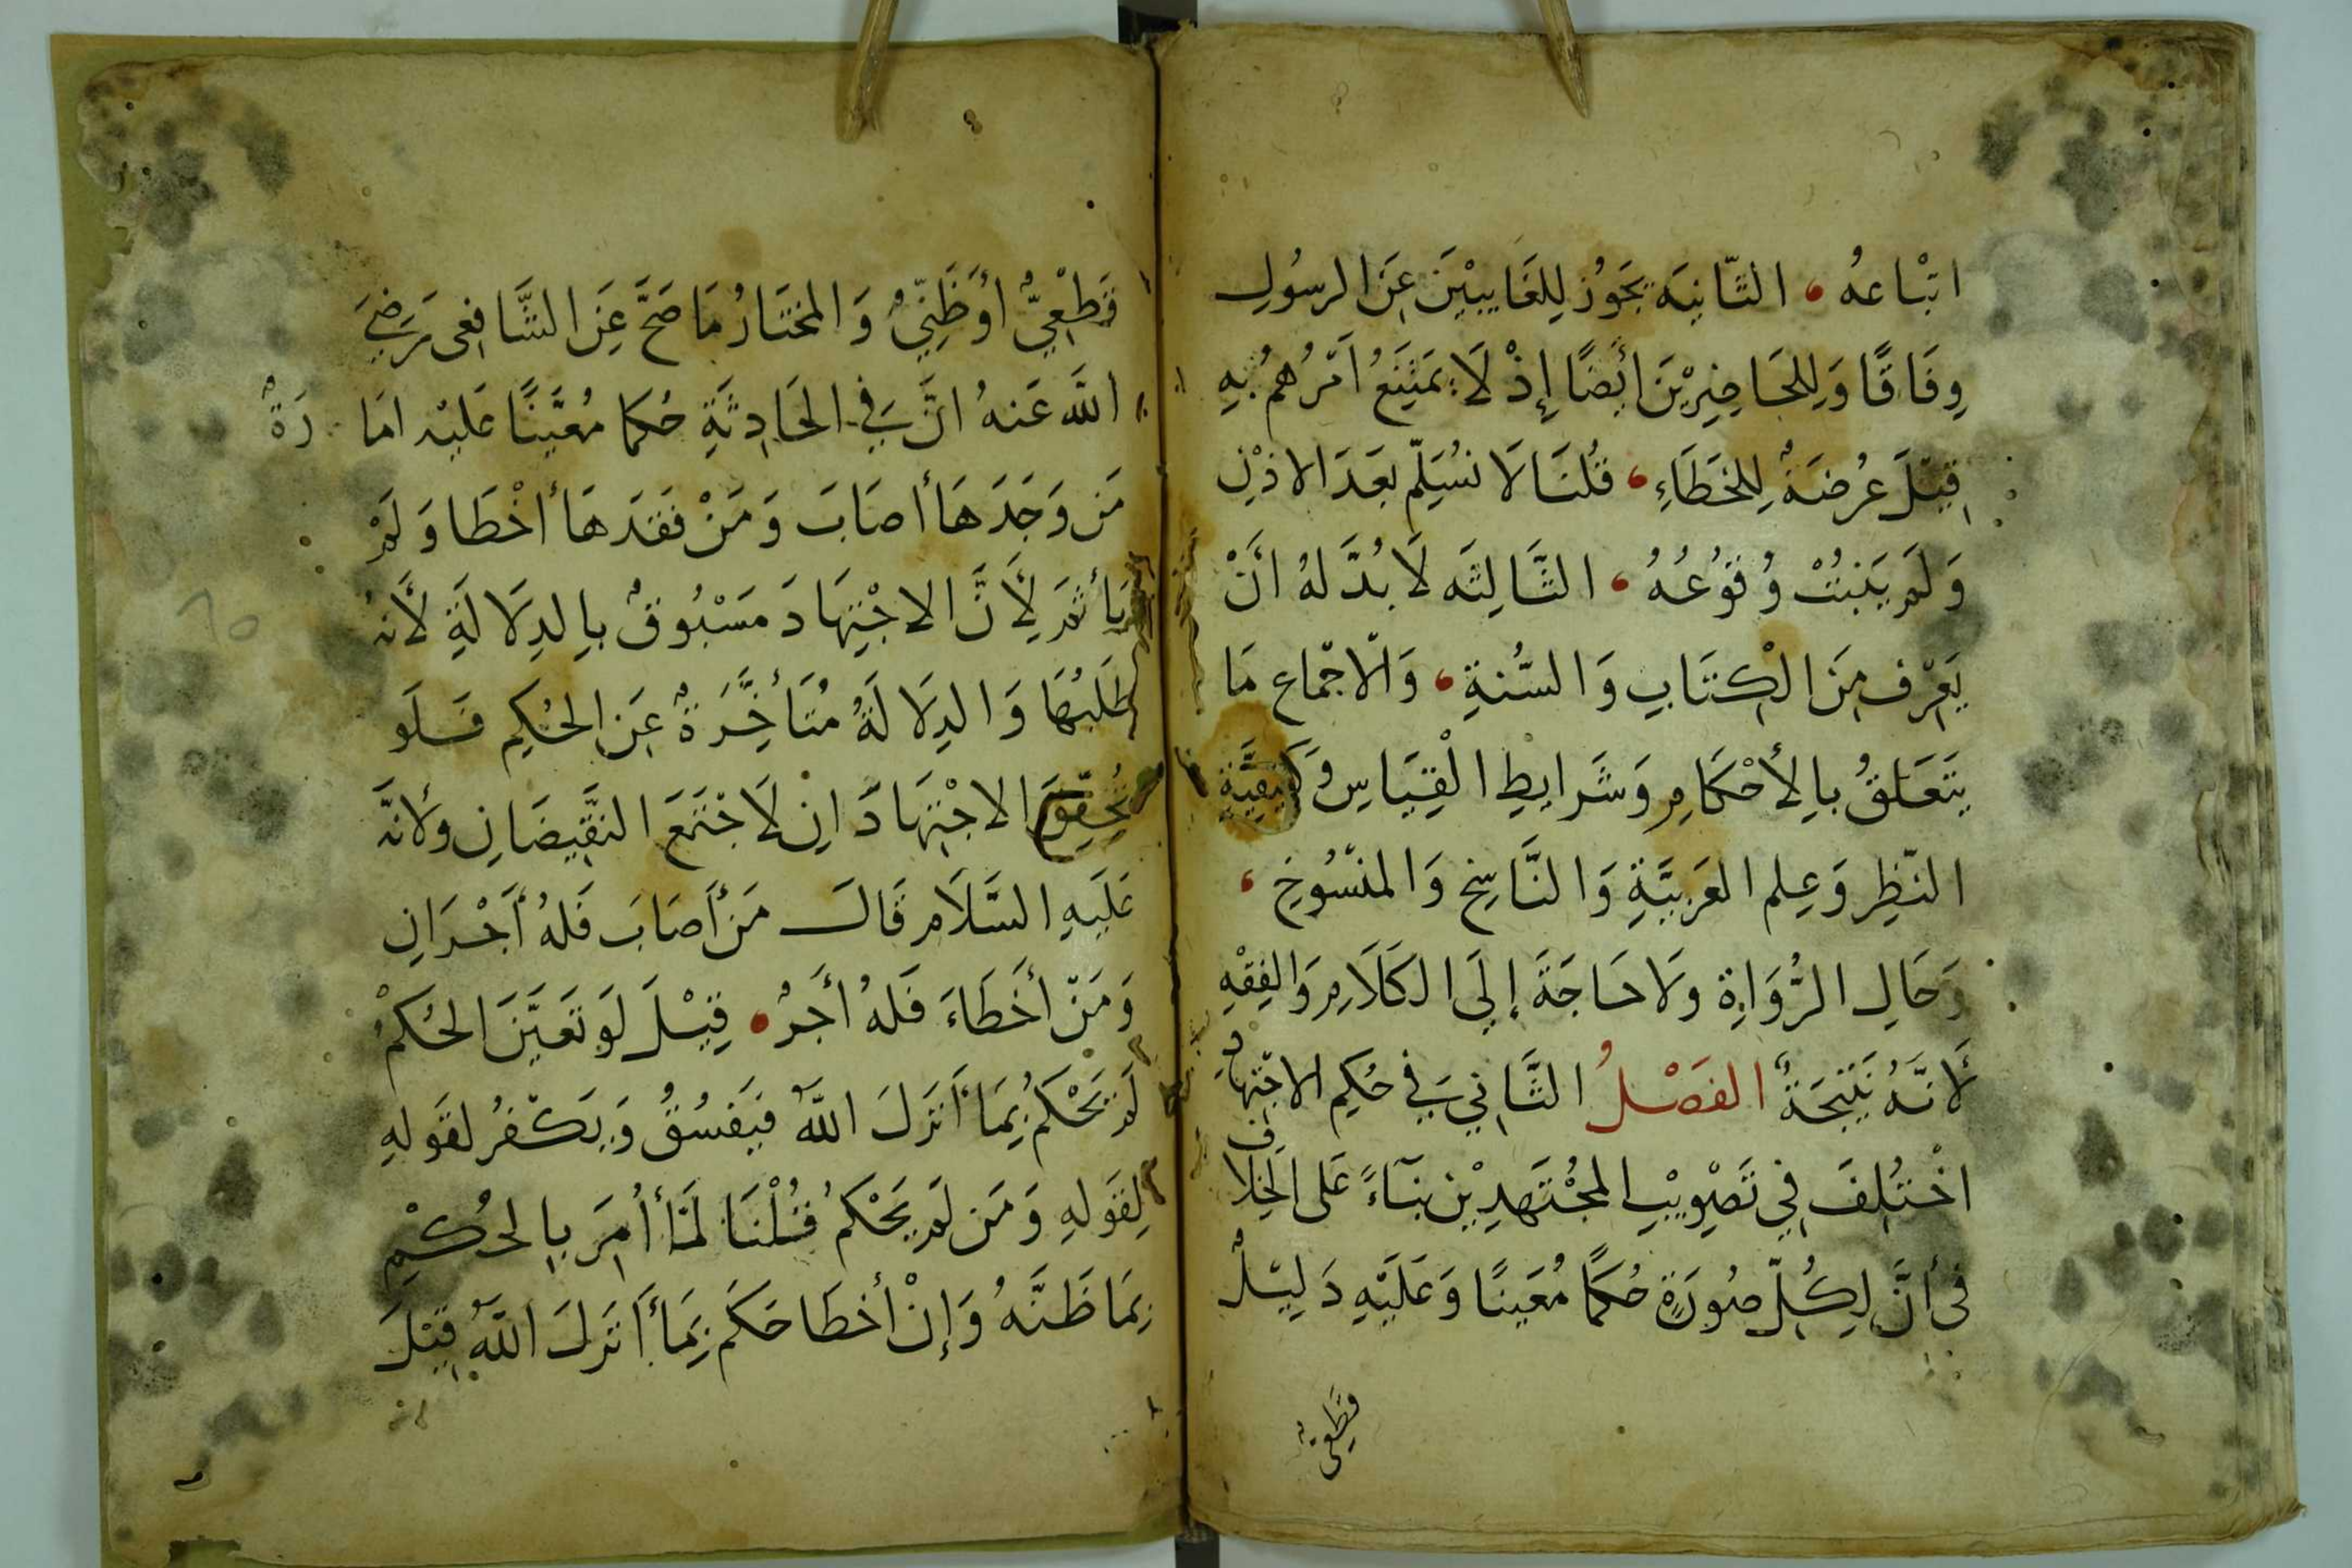 اتْبَاعهُ، الثَّانِيَه يَجَوُز لِلغَايبيْنَ عَنِ الرسُولِ
وِفَاقًا وَلِلحَاضِرِيْنَ أَيضًا إِذْ لَا يَمَتَنِعُ اَمْرُهُم بِهِ
قِيْلَ عُرضَةٌ لِلخَطَاءِ، قُلنَا لَا نسُلِّم بعَدَ الاذْنِ
وَلَمْ يثَبتُ وُقوُعُهُ، الثَّالِثَه لَا بُدَّ لهُ انَّ
يَعرْف مِنَ الْكِتَابِ وَالسُّنةِ، وَالْاجْماع مَا
يتَعَلقُ بالِأَحْكَامِ وَشَرايطِ الْقِيَاسِ وَكَيفِيَّةِ
النّظِر وَعِلم العَربيَّةِ وَالنَّاسِخ وَالمنسُوخِ،
وَحَالِ الرُّوَاةِ ولَا حَاجَةَ إِلَى الكَلَامِ وَالفِقْهِ
لَأنَّهُ نَتيْجَةٌ الفَصْلُ الثَّانِي فِي حُكمِ الاجْتِهادِ
اخْتُلِفَ فِي تَصْوِيْبِ المجْتَهدِيْنِ بنَآءً عَلى الخِلَاف
فى أنَّ لِكُلّ صُورَةٍ حُكمًا مُعَينًا وَعَلَيْهِ دَلِيْلٌ
قَطعِىٌّ
قَطْعِيٌّ أوَظَنِّيٌ وَالمختَارُ مَا صَحَّ عَنِ الشَّافِعى رَضِيَ
اللَّه عَنهُ انَّ فِي الحَادِثَةِ حُكما مُعَّينًا عَليْه امَارَةٌ
مَن وَجَدَهَا أصَابَ وَمَنْ فقَدَهَا أخْطَا وَلَمْ
يَأثمَ لِأَنَّ الاجْتِهَادَ مَسْبُوقٌ بالِدِلَالَةِ لأَنهُ
طَلَبُهَا وَالدِلَالَةُ مُتَأخِّرَةٌ عَنِ الحُكمِ فَلَو
تُحقِّقَ الاجْتِهَادَانِ لَاجْتَمَعَ النَّقِيضَانِ ولأنهَّ
عَلَيهِ السَّلَام قَالَ مَنْ أصَابَ فَلهُ أَجْرَانِ
وَمَنْ أخَطَاءَ فَلهُ أجَرٌ، قِيْلَ لَو تعَيَّنَ الحُكمْ
لَم يَحْكمُ بِمَا أَنزَلَ اللَّهُ فيَفسُقُ وَيَكْفُرُ لقَولهِ
لِقَولهِ وَمَن لَم يَحْكمُ قُلْنَا لمَّا أُمِرَ بالحُكْمِ
بِمَا ظَنَّهُ وَإِنْ أخطَا حَكَمَ بِمَا أَنزَلَ اللَّهُ قِيْلَ